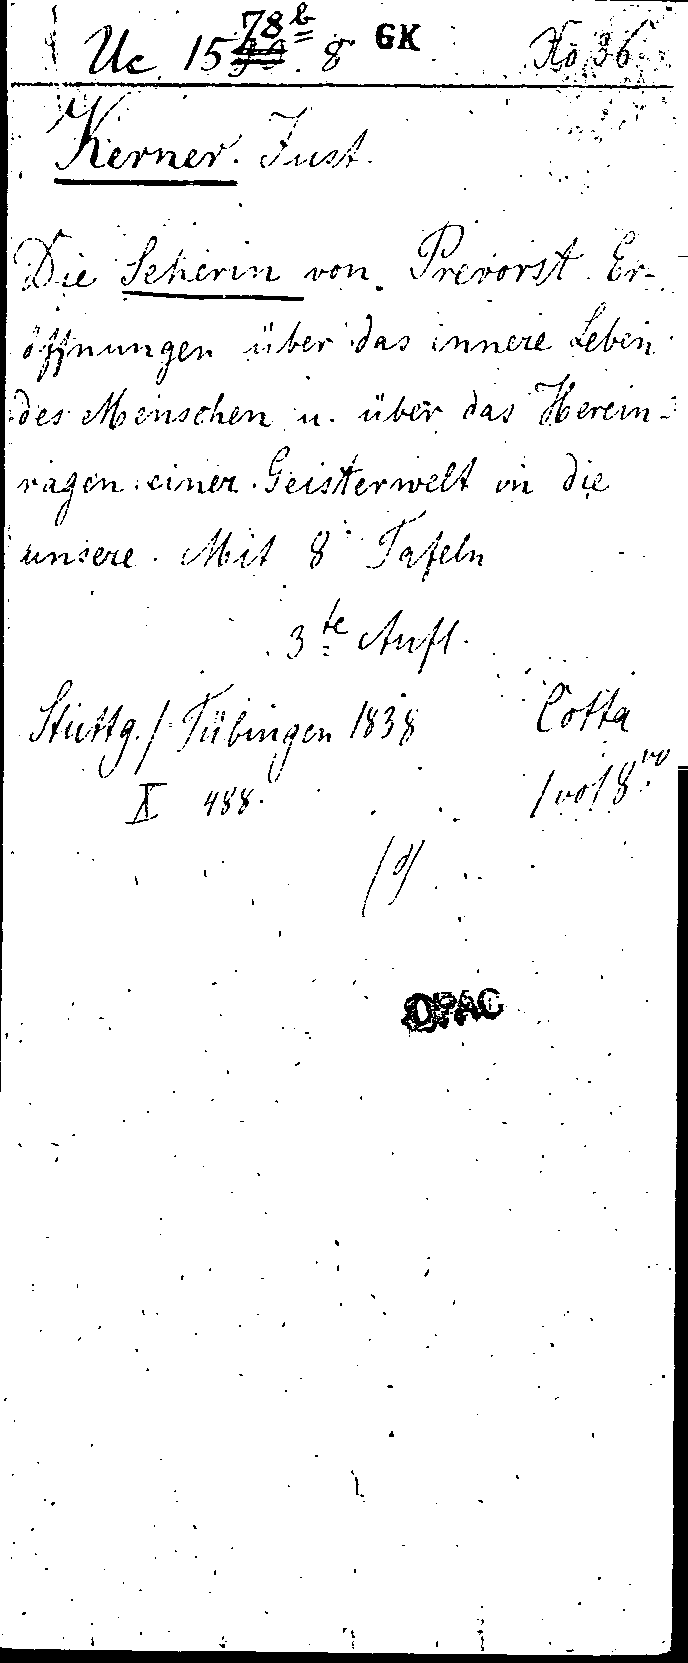 Uc 1578b 8 GK Xö 36
Kerner. Just.
Die Seherin von Prevorst. Er-
öffnungen über das innere Leben
des Menschen u. über das Herein-
ragen einer Geisterwelt in die
unsere. Mit 8 Tafeln
3te Aufl.
Stuttg./Tübingen 1838 Cotta
X 488. 1 vol 8vo
OPAC